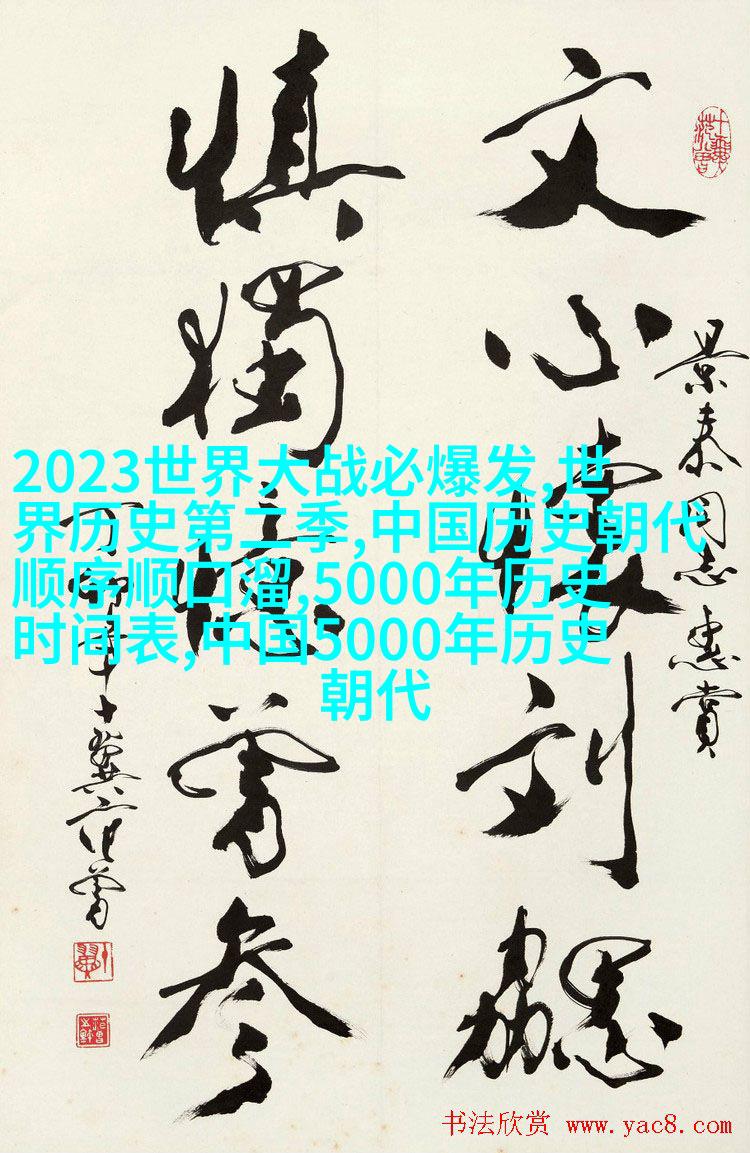 景泰同志惠賞
文心懷劉勰
慎獨憶曾参
十翼范曾
2023世界大战必爆发,世
界历史第二季,中国历史朝代
顺序顺口溜,5000年历史
时间表,中国5000年历史
朝代
书法欣赏 www.yac8.com